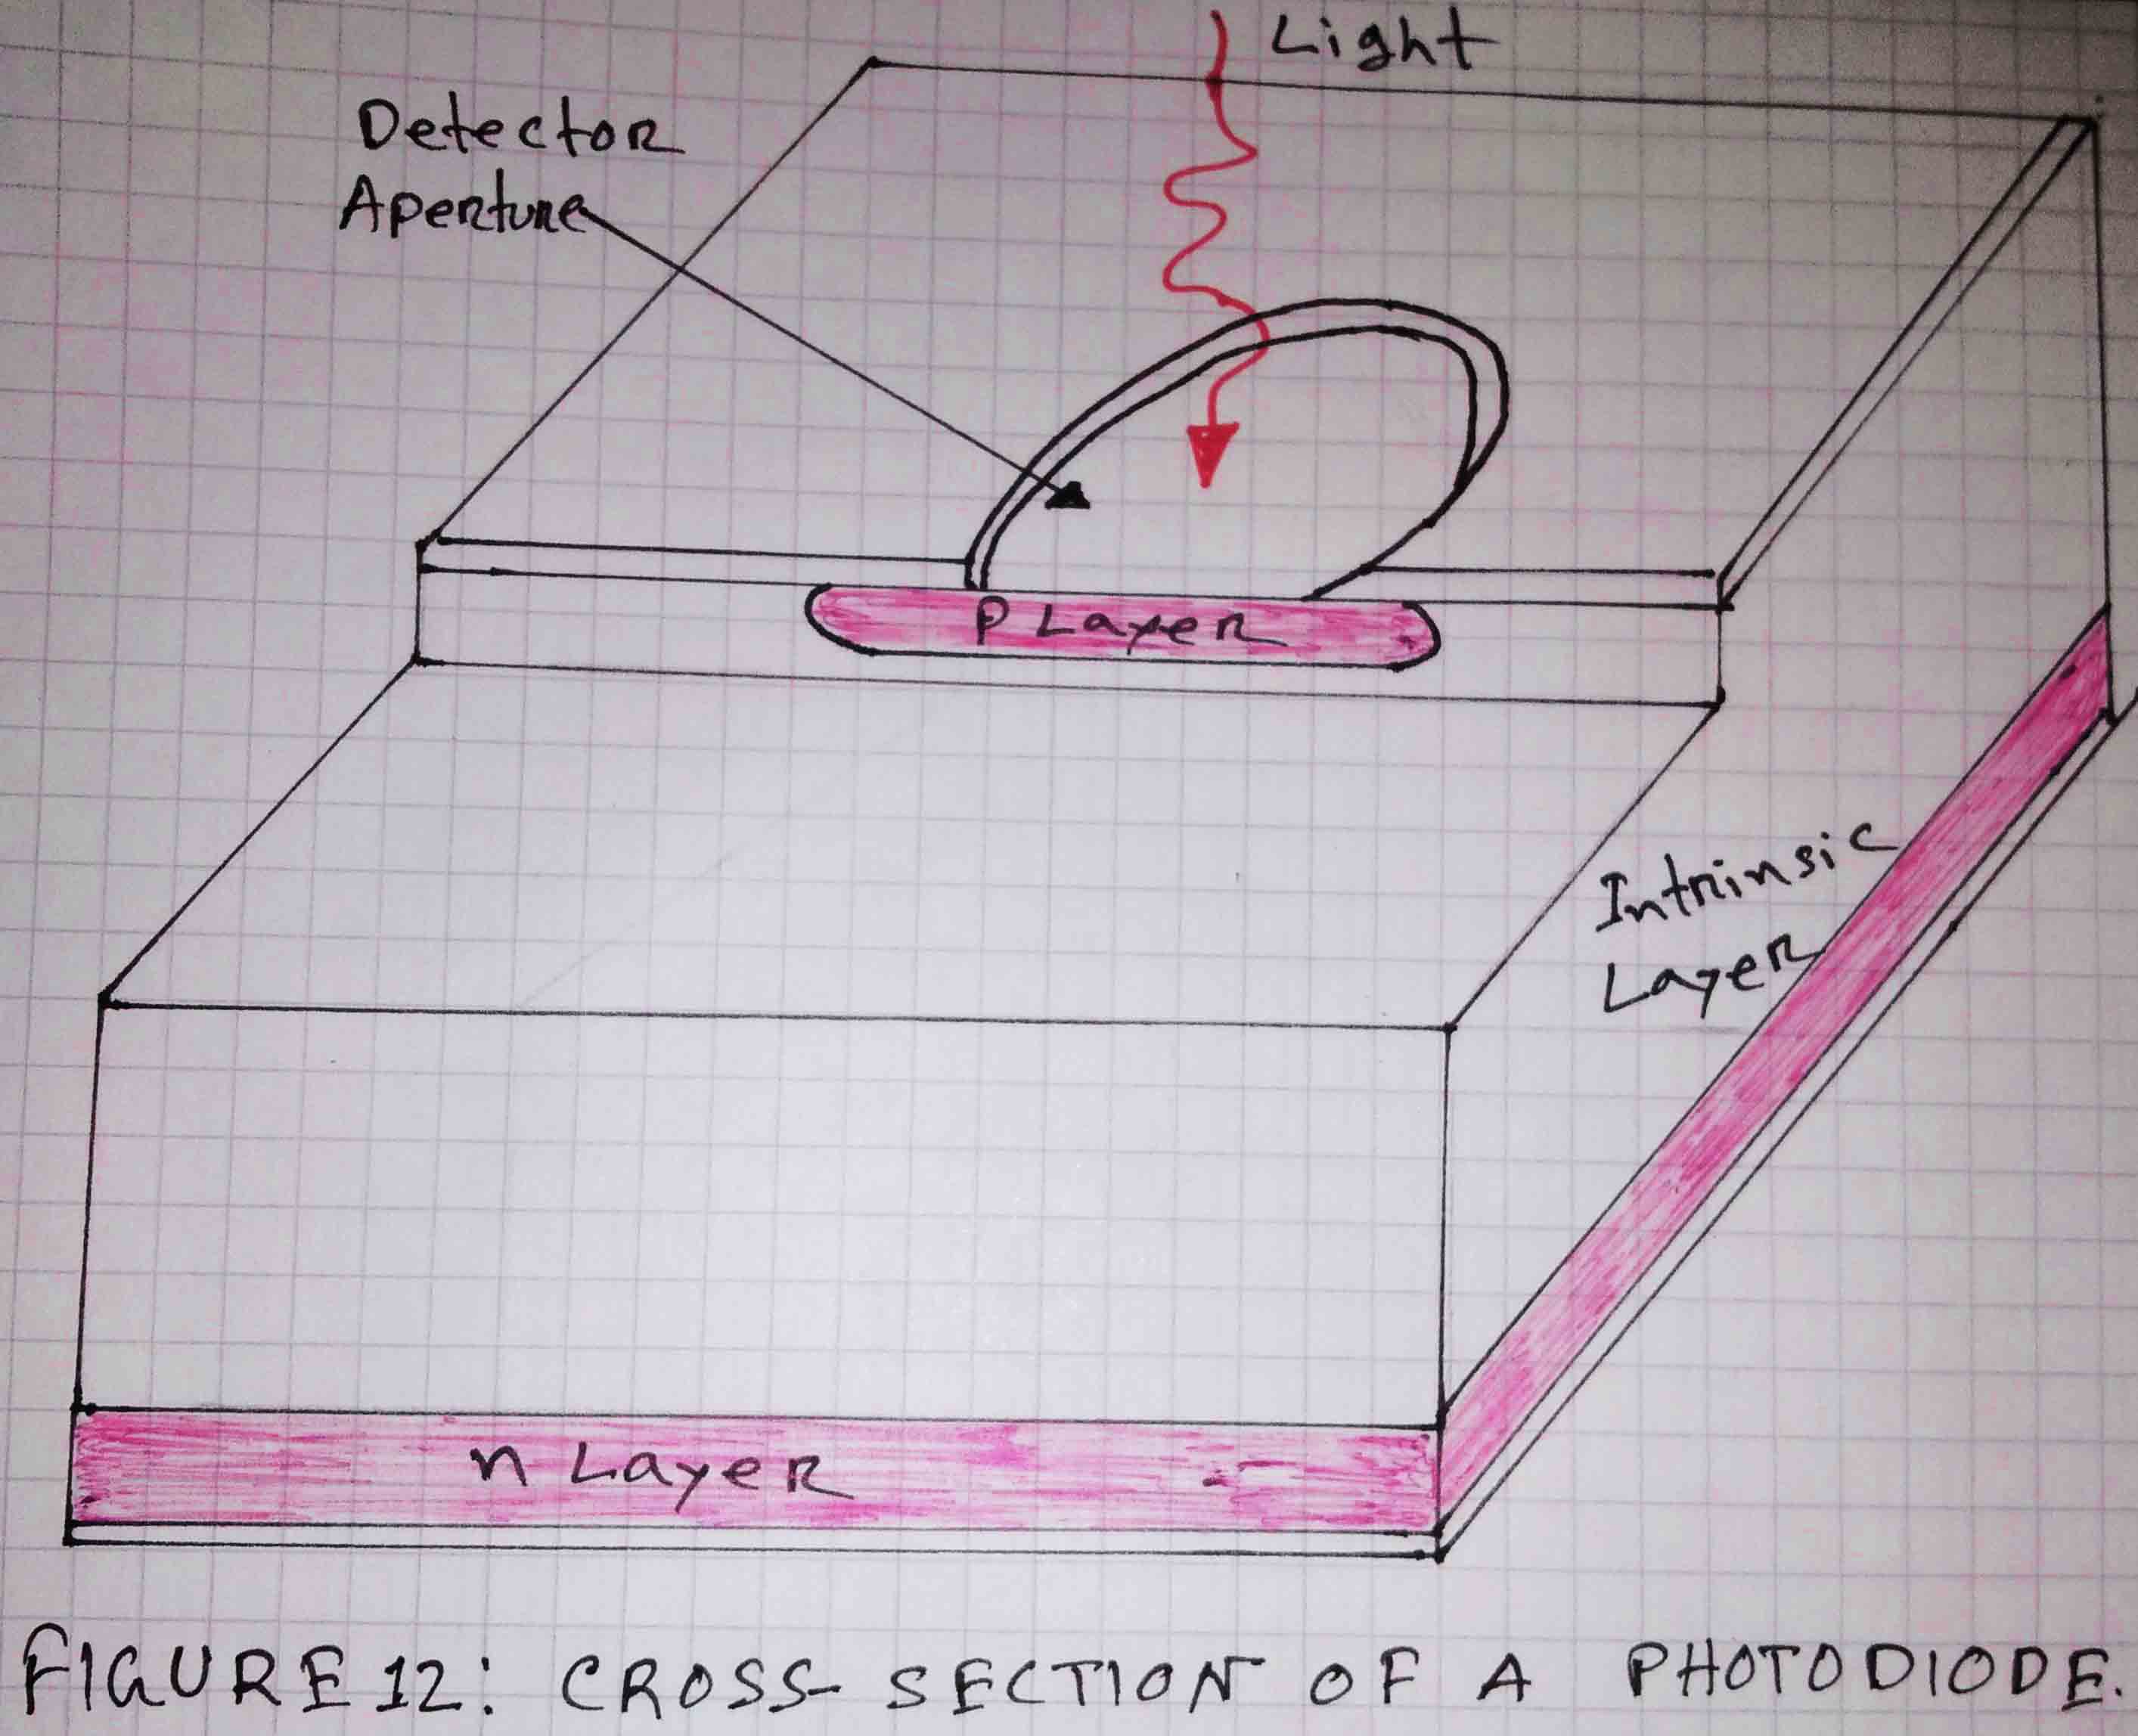 Light
Detector
Aperture
P Layer
Intrinsic
Layer
n Layer
FIGURE 12: CROSS-SECTION OF A PHOTODIODE.